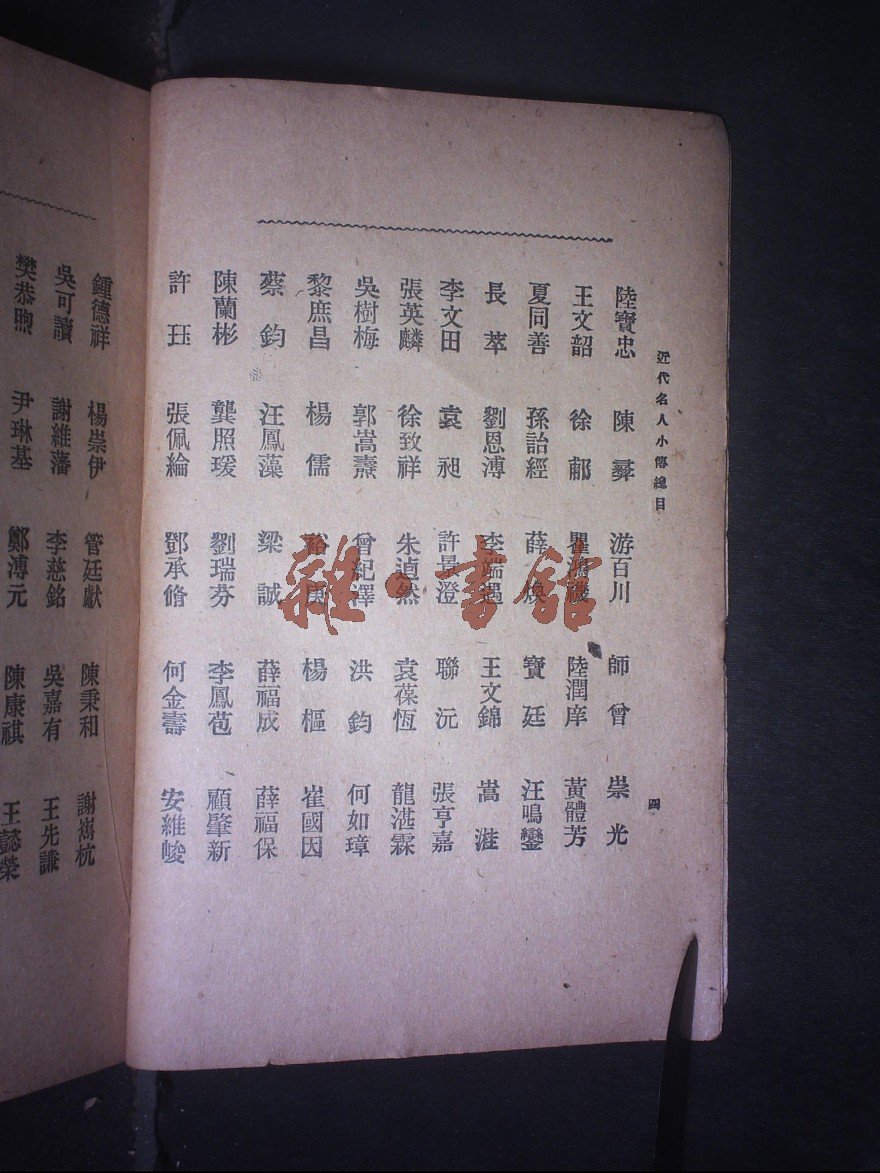 近代名人小傳總目
四
陸寶忠 陳彝 游百川 師曾 崇光
王文韶 徐郙 陸潤庠 黃體芳
夏同善 孫詒經 薛煥 寶廷 汪鳴鑾
長萃 劉恩溥 李端遇 王文錦 嵩溎
李文田 袁昶 許景澄 聯沅 張亨嘉
張英麟 徐致祥 朱逌然 袁葆恆 龍湛霖
吳樹梅 郭嵩燾 曾紀澤 洪鈞 何如璋
黎庶昌 楊儒 裕庚 楊樞 崔國因
蔡鈞 汪鳳藻 梁誠 薛福成 薛福保
陳蘭彬 龔照瑗 劉瑞芬 李鳳苞 顧肇新
許珏 張佩綸 鄧承脩 何金壽 安維峻
鍾德祥 楊崇伊 管廷獻 陳秉和 謝雟杭
吳可讀 謝維藩 李慈銘 吳嘉有 王先謙
樊恭煦 尹琳基 鄭溥元 陳康祺 王懿榮
雜·書館